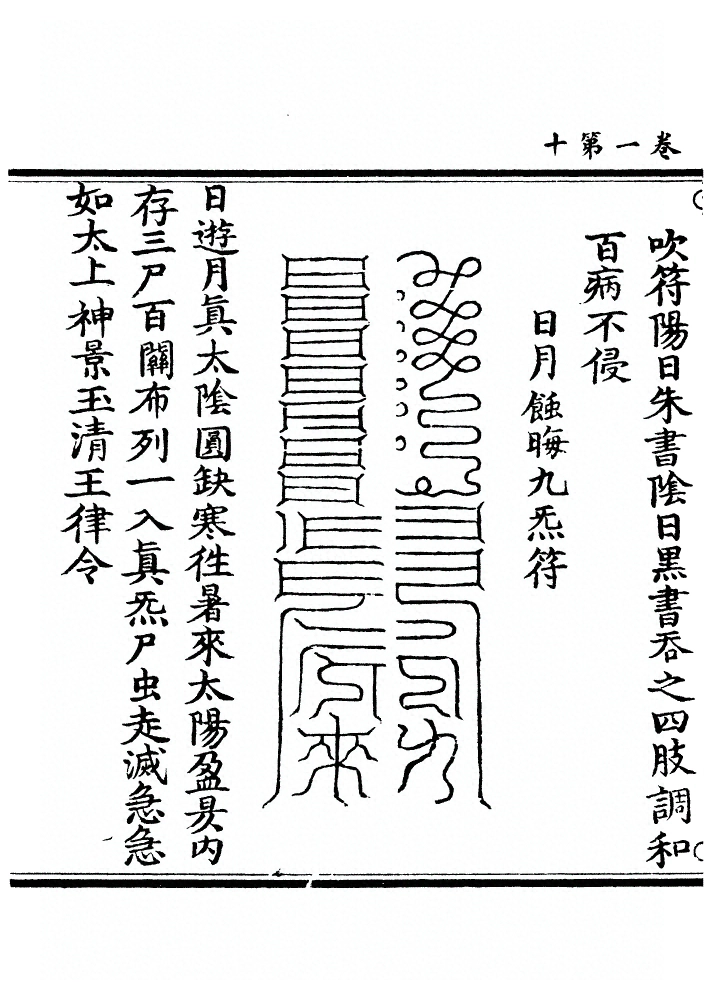 卷一第十
吹符陽日朱書陰日黑書吞之四肢調和
百病不侵
日月蝕晦九炁符
日遊月眞太陰圓缺寒徃暑來太陽盈昃内
存三尸百關布列一入眞炁尸虫走滅急急
如太上神景玉清王律令